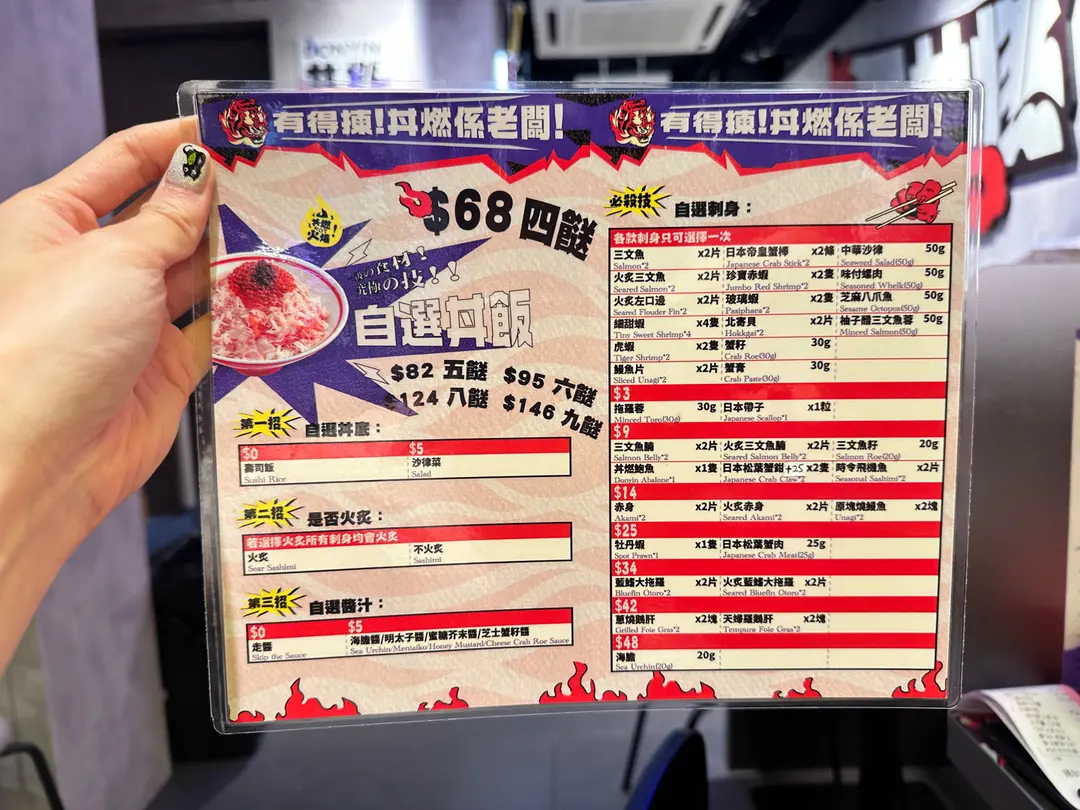 有得揀!丼燃係老闆! 有得揀!丼燃係老闆!
$68 四餸
丼燃
火爆!
の食材!
究極の技!!
自選丼飯
$82 五餸 $95 六餸
$124 八餸 $146 九餸
第一招 自選丼底:
$0 $5
壽司飯 沙律菜
Sushi Rice Salad
第二招 是否火炙:
若選擇火炙所有刺身均會火炙
火炙 不火炙
Sear Sashimi Sashimi
第三招 自選醬汁:
$0 $5
走醬 海膽醬/明太子醬/蜜糖芥末醬/芝士蟹籽醬
Skip the Sauce Sea Urchin/Mentaiko/Honey Mustard/Cheese Crab Roe Sauce
必殺技 自選刺身:
各款刺身只可選擇一次
三文魚 x2片 日本帝皇蟹棒 x2條 中華沙律 50g
Salmon*2 Japanese Crab Stick*2 Seaweed Salad(50g)
火炙三文魚 x2片 珍寶赤蝦 x2隻 味付螺肉 50g
Seared Salmon*2 Jumbo Red Shrimp*2 Seasoned Whelk(50g)
火炙左口邊 x2片 玻璃蝦 x2隻 芝麻八爪魚 50g
Seared Flouder Fin*2 Pasiphaea*2 Sesame Octopus(50g)
細甜蝦 x4隻 北寄貝 x2片 柚子醋三文魚蓉 50g
Tiny Sweet Shrimp*4 Hokkgai*2 Minced Salmon(50g)
虎蝦 x2隻 蟹籽 30g
Tiger Shrimp*2 Crab Roe(30g)
鰻魚片 x2片 蟹膏 30g
Sliced Unagi*2 Crab Paste(30g)
$3
拖羅蓉 30g 日本帶子 x1粒
Minced Toro(30g) Japanese Scallop*1
$9
三文魚腩 x2片 火炙三文魚腩 x2片 三文魚籽 20g
Salmon Belly*2 Seared Salmon Belly*2 Salmon Roe(20g)
丼燃鮑魚 x1隻 日本松葉蟹鉗 +25 x2隻 時令飛機魚 x2片
Donyin Abalone*1 Japanese Crab Claw*2 Seasonal Sashimi*2
$14
赤身 x2片 火炙赤身 x2片 原塊燒鰻魚 x2塊
Akami*2 Seared Akami*2 Unagi*2
$25
牡丹蝦 x1隻 日本松葉蟹肉 25g
Spot Prawn*1 Japanese Crab Meat(25g)
$34
藍鰭大拖羅 x2片 火炙藍鰭大拖羅 x2片
Bluefin Otoro*2 Seared Bluefin Otoro*2
$42
蔥燒鵝肝 x2塊 天婦羅鵝肝 x2塊
Grilled Foie Gras*2 Tempura Foie Gras*2
$48
海膽 20g
Sea Urchin(20g)